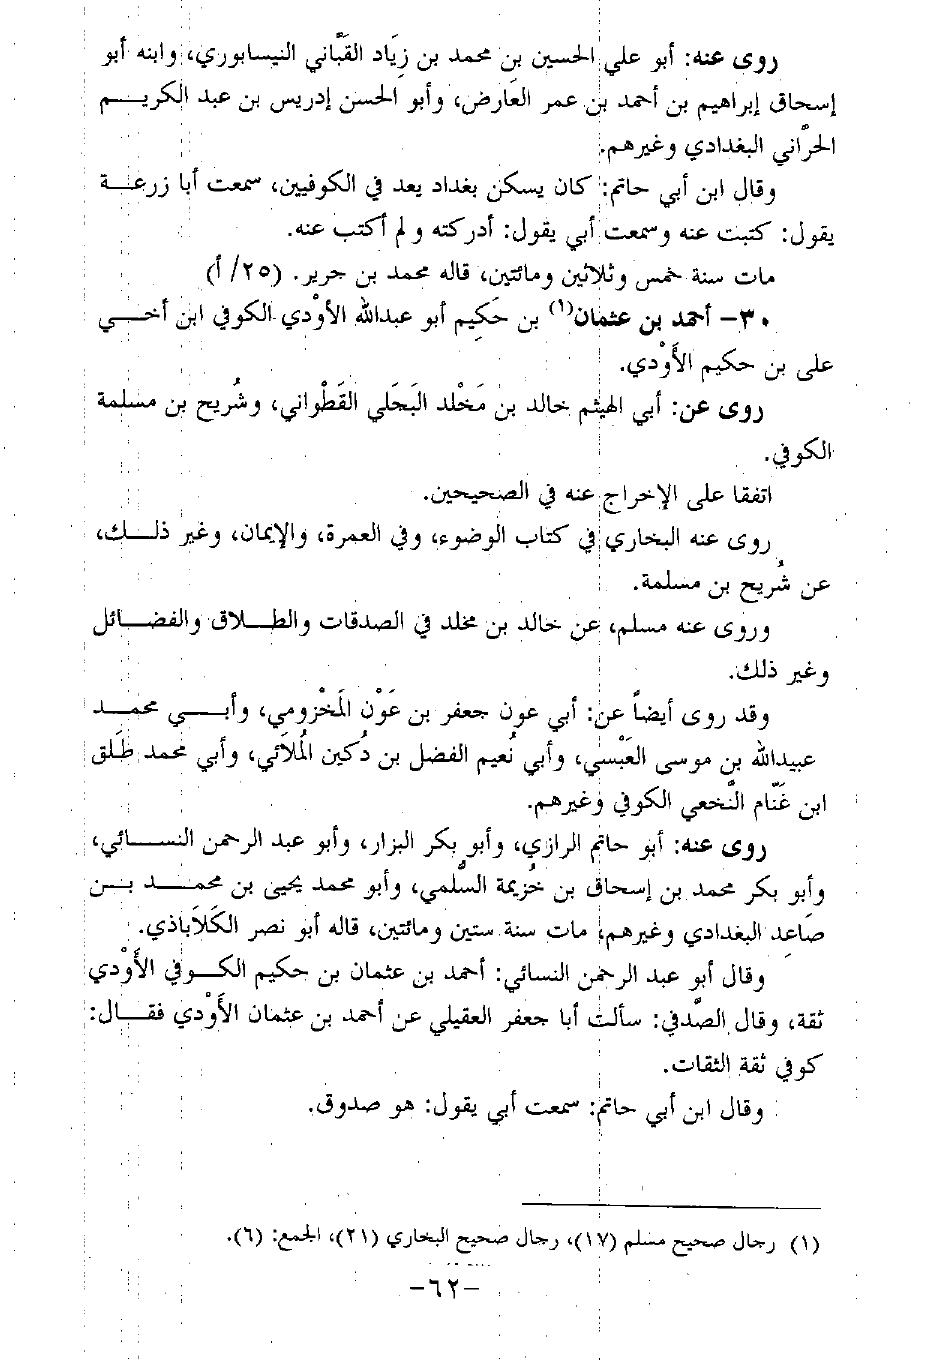 روى عنه: أبو علي الحسين بن محمد بن زِيَاد القَبَّاني النيسابوري، وابنه أبو
إسحاق إبراهيم بن أحمد بن عمر العَارِض، وأبو الحسن إدريس بن عبد الكريم
الحرَّاني البغدادي وغيرهم.
وقال ابن أبي حاتم: كان يسكن بغداد يعد في الكوفيين، سمعت أبا زرعة
يقول: كتبت عنه وسمعت أبي يقول: أدركته ولم أكتب عنه.
مات سنة خمس وثلاثين ومائتين، قاله محمد بن جرير. (٢٥/ أ)
٣٠- أحمد بن عثمان(١) بن حَكِيم أبو عبدالله الأوْدي الكوفي ابن أخي
على بن حكيم الأَوْدي.
روى عن: أبي الهيثم خالد بن مَخْلد البَجَلي القَطْواني، وشُريح بن مسلمة
الكوفي.
اتفقا على الإخراج عنه في الصحيحين.
روى عنه البخاري في كتاب الوضوء، وفي العمرة، والإيمان، وغير ذلك،
عن شُريح بن مسلمة.
وروى عنه مسلم، عن خالد بن مخلد في الصدقات والطلاق والفضائل
وغير ذلك.
وقد روى أيضاً عن: أبي عون جعفر بن عَوْن المَخْزومي، وأبي محمد
عبيدالله بن موسى العَبْسي، وأبي نُعيم الفضل بن دُكين المُلَائي، وأبي محمد طَلق
ابن غَنَّام النَّخعي الكوفي وغيرهم.
روى عنه: أبو حاتم الرازي، وأبو بكر البزار، وأبو عبد الرحمن النسائي،
وأبو بكر محمد بن إسحاق بن خُزيمة السُّلمي، وأبو محمد يحيى بن محمد بن
صَاعِد البغدادي وغيرهم، مات سنة ستين ومائتين، قاله أبو نصر الكَلَاباذي.
وقال أبو عبد الرحمن النسائي: أحمد بن عثمان بن حكيم الكوفي الأَوْدي
ثقة، وقال الصَّدفي: سألت أبا جعفر العقيلي عن أحمد بن عثمان الأَوْدي فقال:
كوفي ثقة الثقات.
وقال ابن أبي حاتم: سمعت أبي يقول: هو صدوق.
(١) رجال صحيح مسلم (١٧)، رجال صحيح البخاري (٢١)، الجمع: (٦).
-٦٢-